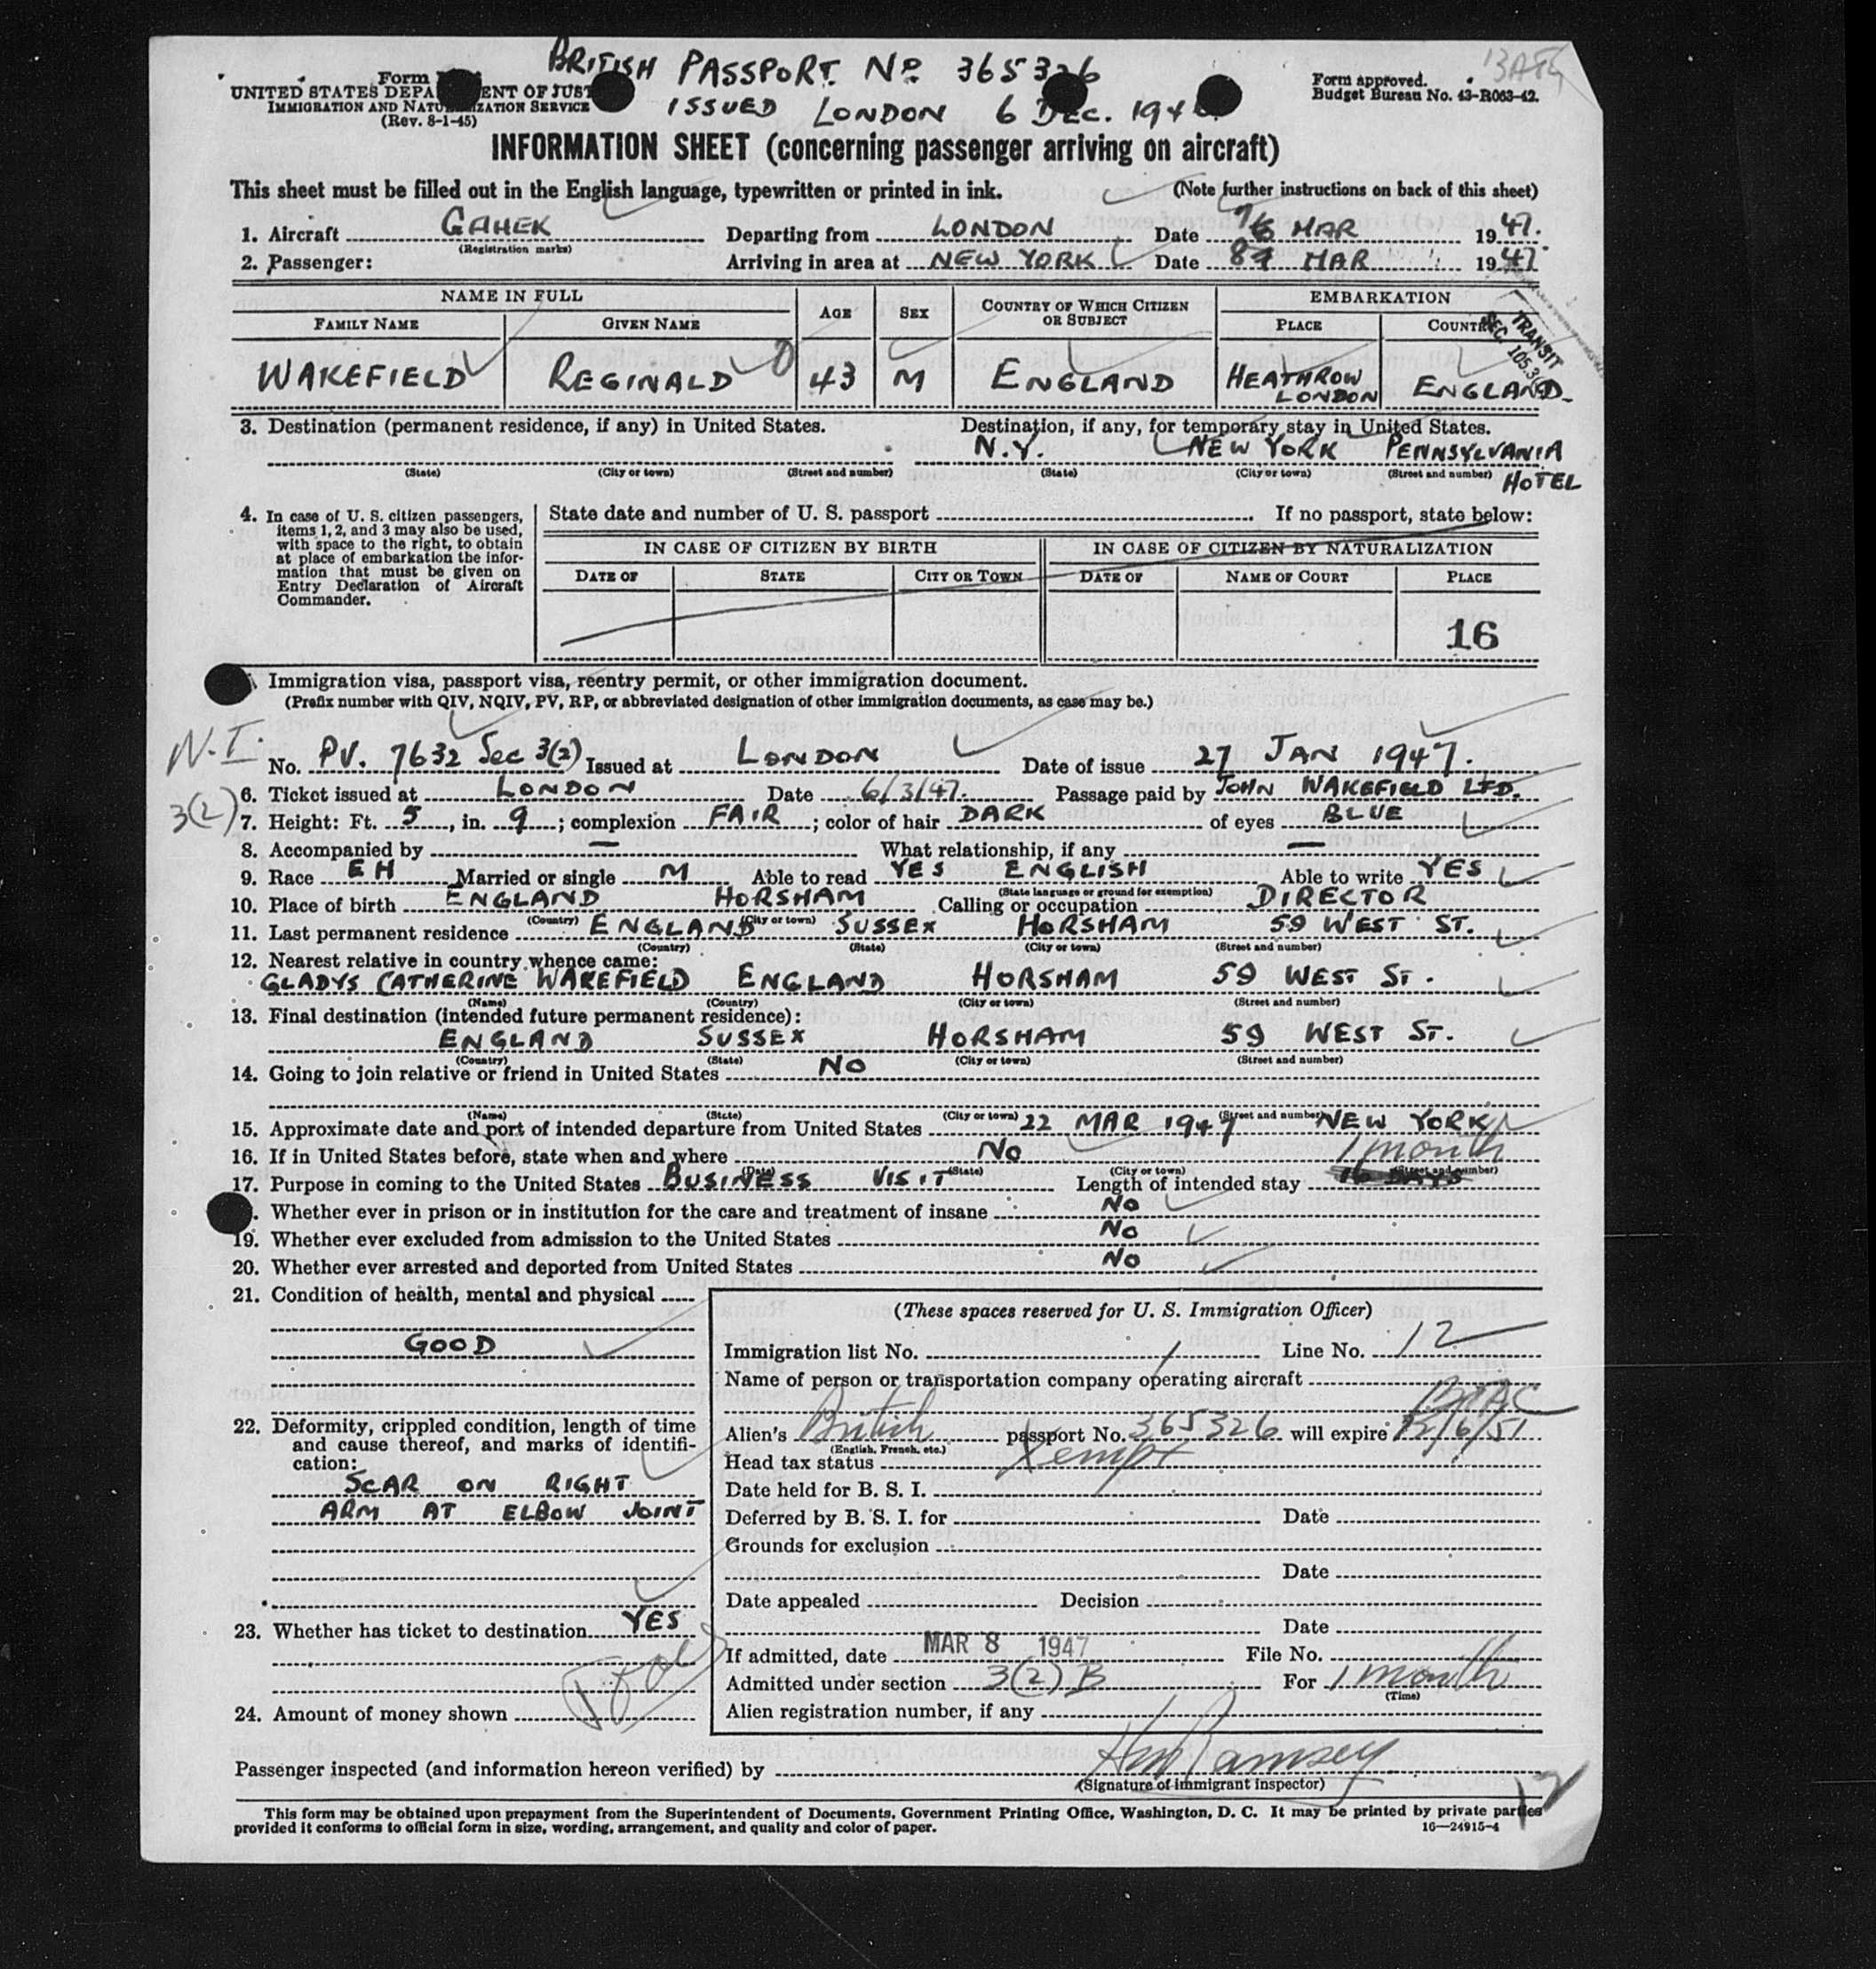 BRITISH PASSPORT. No. 365326
ISSUED LONDON 6 DEC. 194
Form
UNITED STATES DEPA ENT OF JUST
IMMIGRATION AND NATU IZATION SERVICE
(Rev. 8-1-45)
Form approved.
Budget Bureau No. 43-R063-42.
INFORMATION SHEET (concerning passenger arriving on aircraft)
This sheet must be filled out in the English language, typewritten or printed in ink. (Note further instructions on back of this sheet)
1. Aircraft GAHEK Departing from LONDON Date MAR 1947.
(Registration marks)
2. Passenger: Arriving in area at NEW YORK Date 8 MAR 1947.
NAME IN FULL AGE SEX COUNTRY OF WHICH CITIZEN OR SUBJECT EMBARKATION
FAMILY NAME GIVEN NAME PLACE COUNTRY
TRANSIT
SEC. 105.3(
WAKEFIELD REGINALD 43 M ENGLAND HEATHROW LONDON ENGLAND
3. Destination (permanent residence, if any) in United States. Destination, if any, for temporary stay in United States.
N.Y. NEW YORK PENNSYLVANIA HOTEL
(State) (City or town) (Street and number) (State) (City or town) (Street and number)
4. In case of U. S. citizen passengers, items 1, 2, and 3 may also be used, with space to the right, to obtain at place of embarkation the information that must be given on Entry Declaration of Aircraft Commander.
State date and number of U. S. passport If no passport, state below:
IN CASE OF CITIZEN BY BIRTH IN CASE OF CITIZEN BY NATURALIZATION
DATE OF STATE CITY OR TOWN DATE OF NAME OF COURT PLACE
16
Immigration visa, passport visa, reentry permit, or other immigration document.
(Prefix number with QIV, NQIV, PV, RP, or abbreviated designation of other immigration documents, as case may be.)
N.I.
No. PV. 7632 Sec 3(2) Issued at LONDON Date of issue 27 JAN 1947.
3(2)
6. Ticket issued at LONDON Date 6/3/47. Passage paid by JOHN WAKEFIELD LTD.
7. Height: Ft. 5, in. 9; complexion FAIR; color of hair DARK of eyes BLUE
8. Accompanied by — What relationship, if any —
9. Race EH Married or single M Able to read YES ENGLISH Able to write YES
(State language or ground for exemption)
10. Place of birth ENGLAND HORSHAM Calling or occupation DIRECTOR
(Country) (City or town)
11. Last permanent residence ENGLAND SUSSEX HORSHAM 59 WEST ST.
(Country) (State) (City or town) (Street and number)
12. Nearest relative in country whence came:
GLADYS CATHERINE WAKEFIELD ENGLAND HORSHAM 59 WEST ST.
(Name) (Country) (City or town) (Street and number)
13. Final destination (intended future permanent residence):
ENGLAND SUSSEX HORSHAM 59 WEST ST.
(Country) (State) (City or town) (Street and number)
14. Going to join relative or friend in United States NO
(Name) (State) (City or town) (Street and number)
15. Approximate date and port of intended departure from United States 22 MAR 1947 NEW YORK
16. If in United States before, state when and where No 1 month
(Date) (State) (City or town) (Street and number)
17. Purpose in coming to the United States BUSINESS VISIT Length of intended stay 16 DAYS
Whether ever in prison or in institution for the care and treatment of insane No
19. Whether ever excluded from admission to the United States No
20. Whether ever arrested and deported from United States No
21. Condition of health, mental and physical
GOOD
22. Deformity, crippled condition, length of time and cause thereof, and marks of identification:
SCAR ON RIGHT
ARM AT ELBOW JOINT
23. Whether has ticket to destination YES
24. Amount of money shown
(These spaces reserved for U. S. Immigration Officer)
Immigration list No. 1 Line No. 12
Name of person or transportation company operating aircraft
BOAC
Alien's British passport No. 365326 will expire 12/6/51
(English, French, etc.)
Head tax status Xempt
Date held for B. S. I.
Deferred by B. S. I. for Date
Grounds for exclusion
Date
Date appealed Decision
Date
If admitted, date MAR 8 1947 File No.
Admitted under section 3(2) B For 1 month
(Time)
Alien registration number, if any
Passenger inspected (and information hereon verified) by Ramsey
(Signature of immigrant inspector)
12
This form may be obtained upon prepayment from the Superintendent of Documents, Government Printing Office, Washington, D. C. It may be printed by private parties
provided it conforms to official form in size, wording, arrangement, and quality and color of paper. 16—24915-4